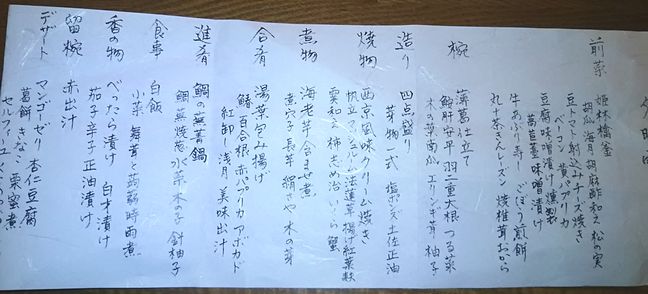 前菜
姫林檎釜
胡瓜 海月 胡麻酢和え 松の実
豆トマト射込みチーズ焼き
黄パプリカ
豆腐味噌漬け燻製
萵苣薹味噌漬け
牛あぶり寿し ごぼう煎餅
丸十茶きんレーズン 焼椎茸おから
椀
葛仕立て
鮟肝安平 羽二重大根 つる菜
木の葉南瓜 エリンギ茸 柚子
造り
四点盛り
芽物一式 塩ポンズ 土佐正油
焼物
西京風味クリーム焼き
法蓮草 揚げ紅葉麩
雲和え 柿
いくら 蟹
煮物
海老芋 合ませ煮
煮穴子 長芋 絹さや 木の芽
合肴
湯葉包み揚げ
鱧 百合根 赤パプリカ アボカド
紅卸し 浅月 美味出汁
進肴
鯛の蕪菁鍋
水菜 木の子 針柚子
食事
白飯
小菜 舞茸と蒟蒻時雨煮
香の物
べったら漬け 白才漬け
茄子辛子正油漬け
留椀
赤出汁
デザート
マンゴーゼリー 杏仁豆腐
葛餅 きなこ 栗蜜煮
セルフィーユ